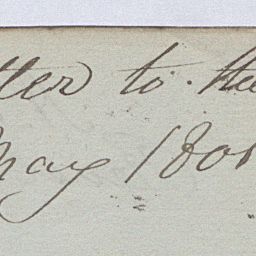 tter to the
May 1801